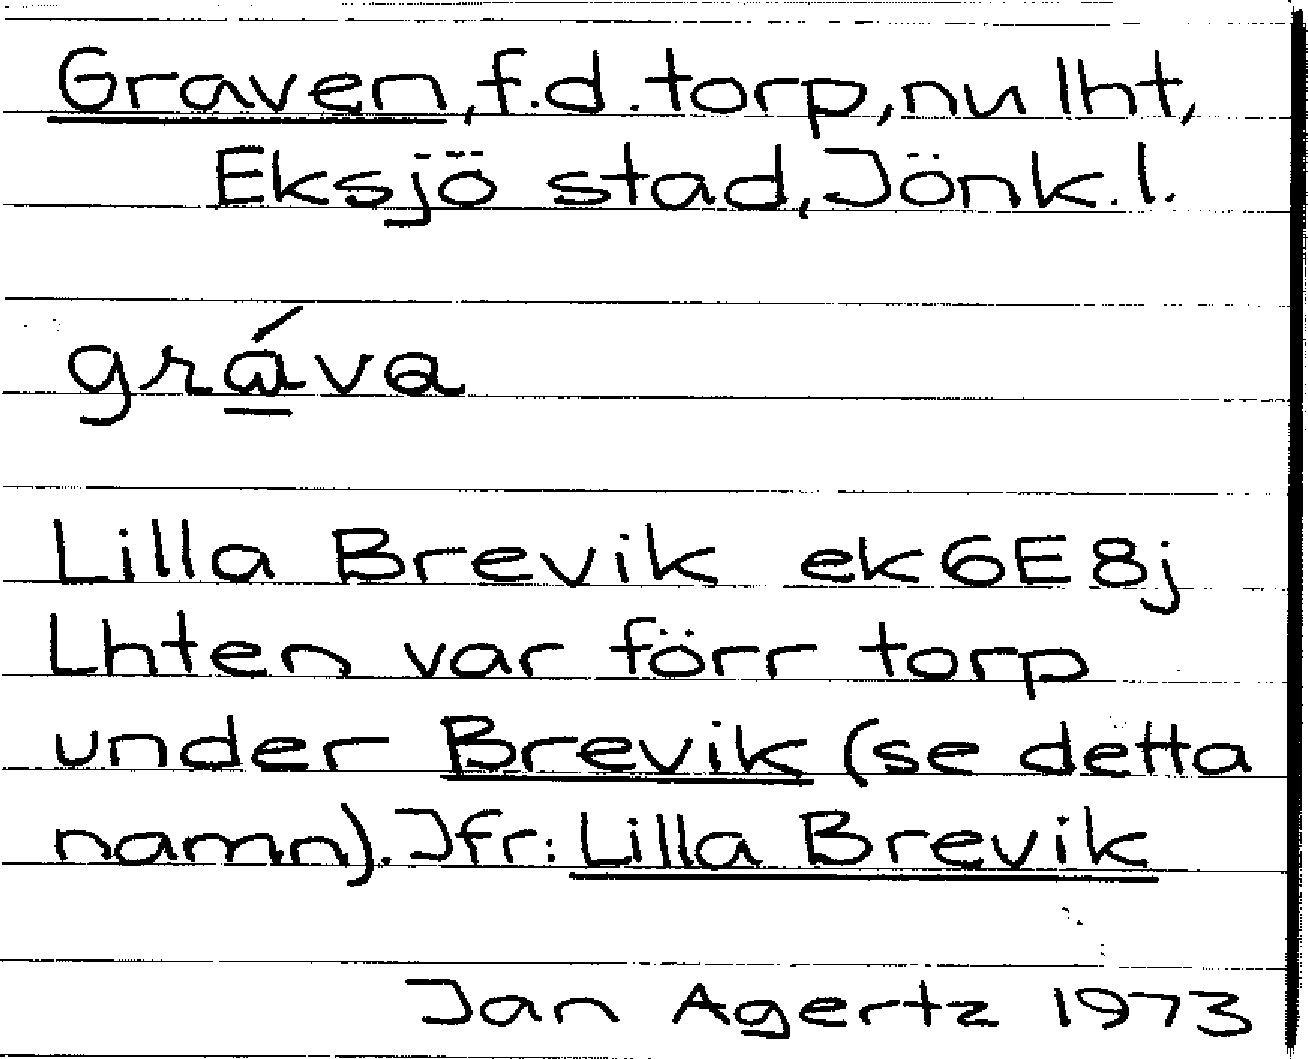 Graven, f.d. torp, nu lht,
Eksjö stad, Jönk. l.
gráva
Lilla Brevik ek 6E8j
Lhten var förr torp
under Brevik (se detta
namn). Jfr: Lilla Brevik
Jan Agertz 1973